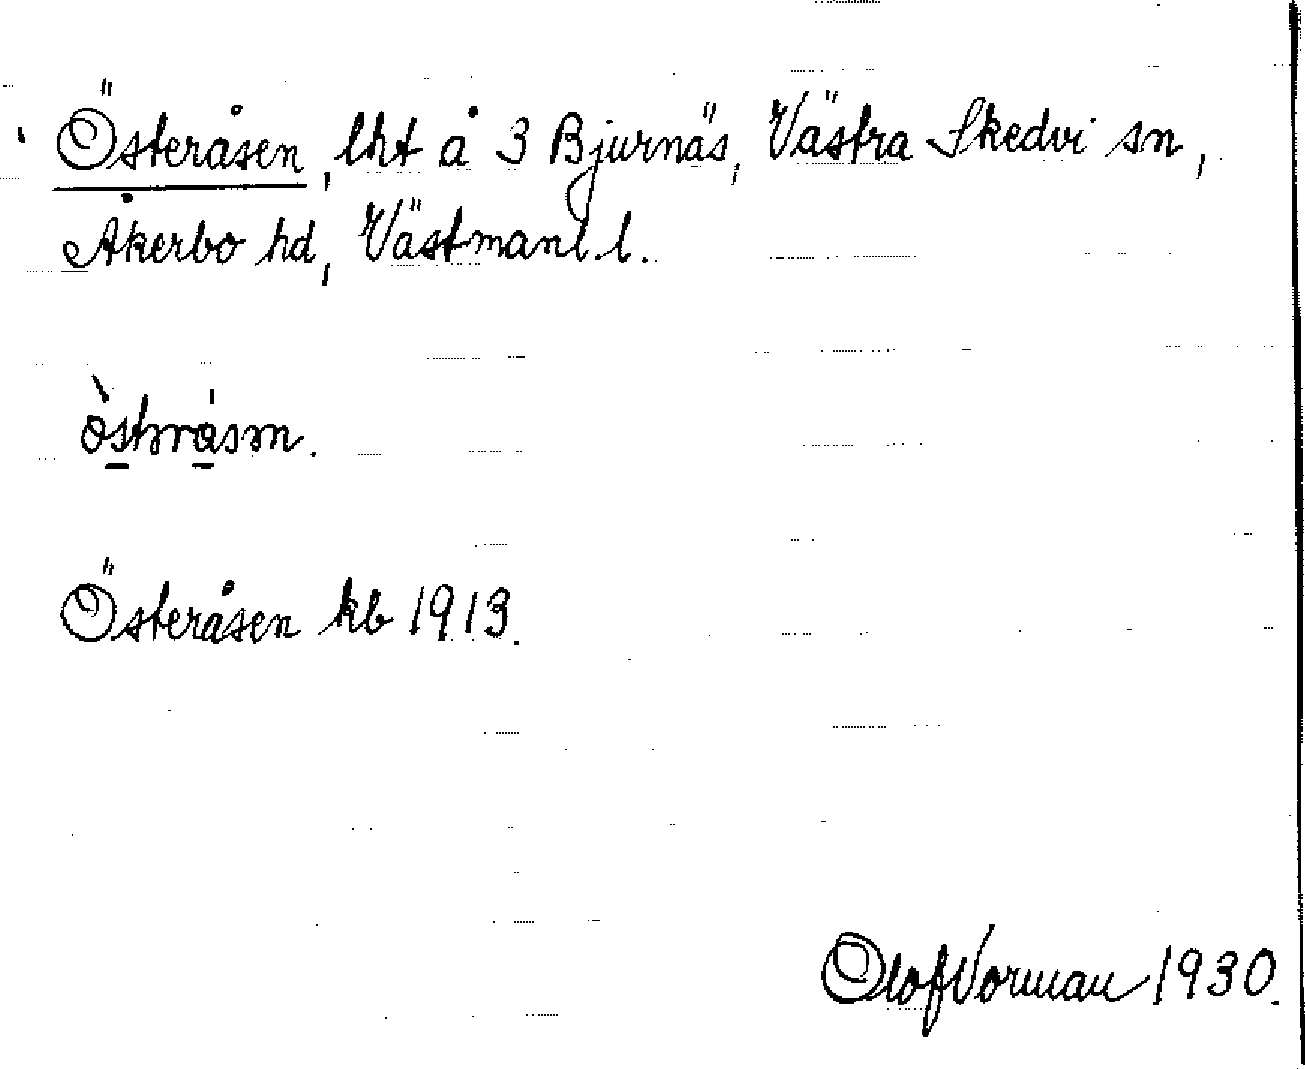 Österåsen, lht å 3 Bjurnäs, Västra Skedvi sn,
Åkerbo hd, Västmanl. l.
Österåsen kb 1913.
Olof Vorman 1930.